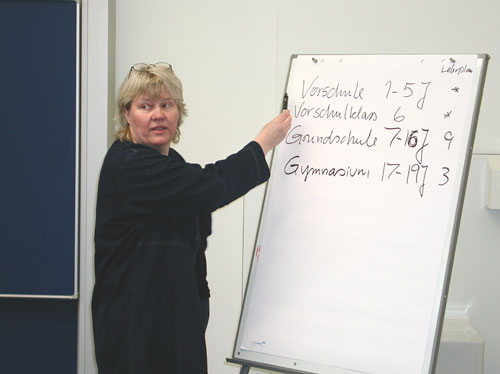 Lehrplan
Vorschule 1-5J *
Vorschulklass 6 *
Grundschule 7-16J 9
Gymnasium 17-19J 3